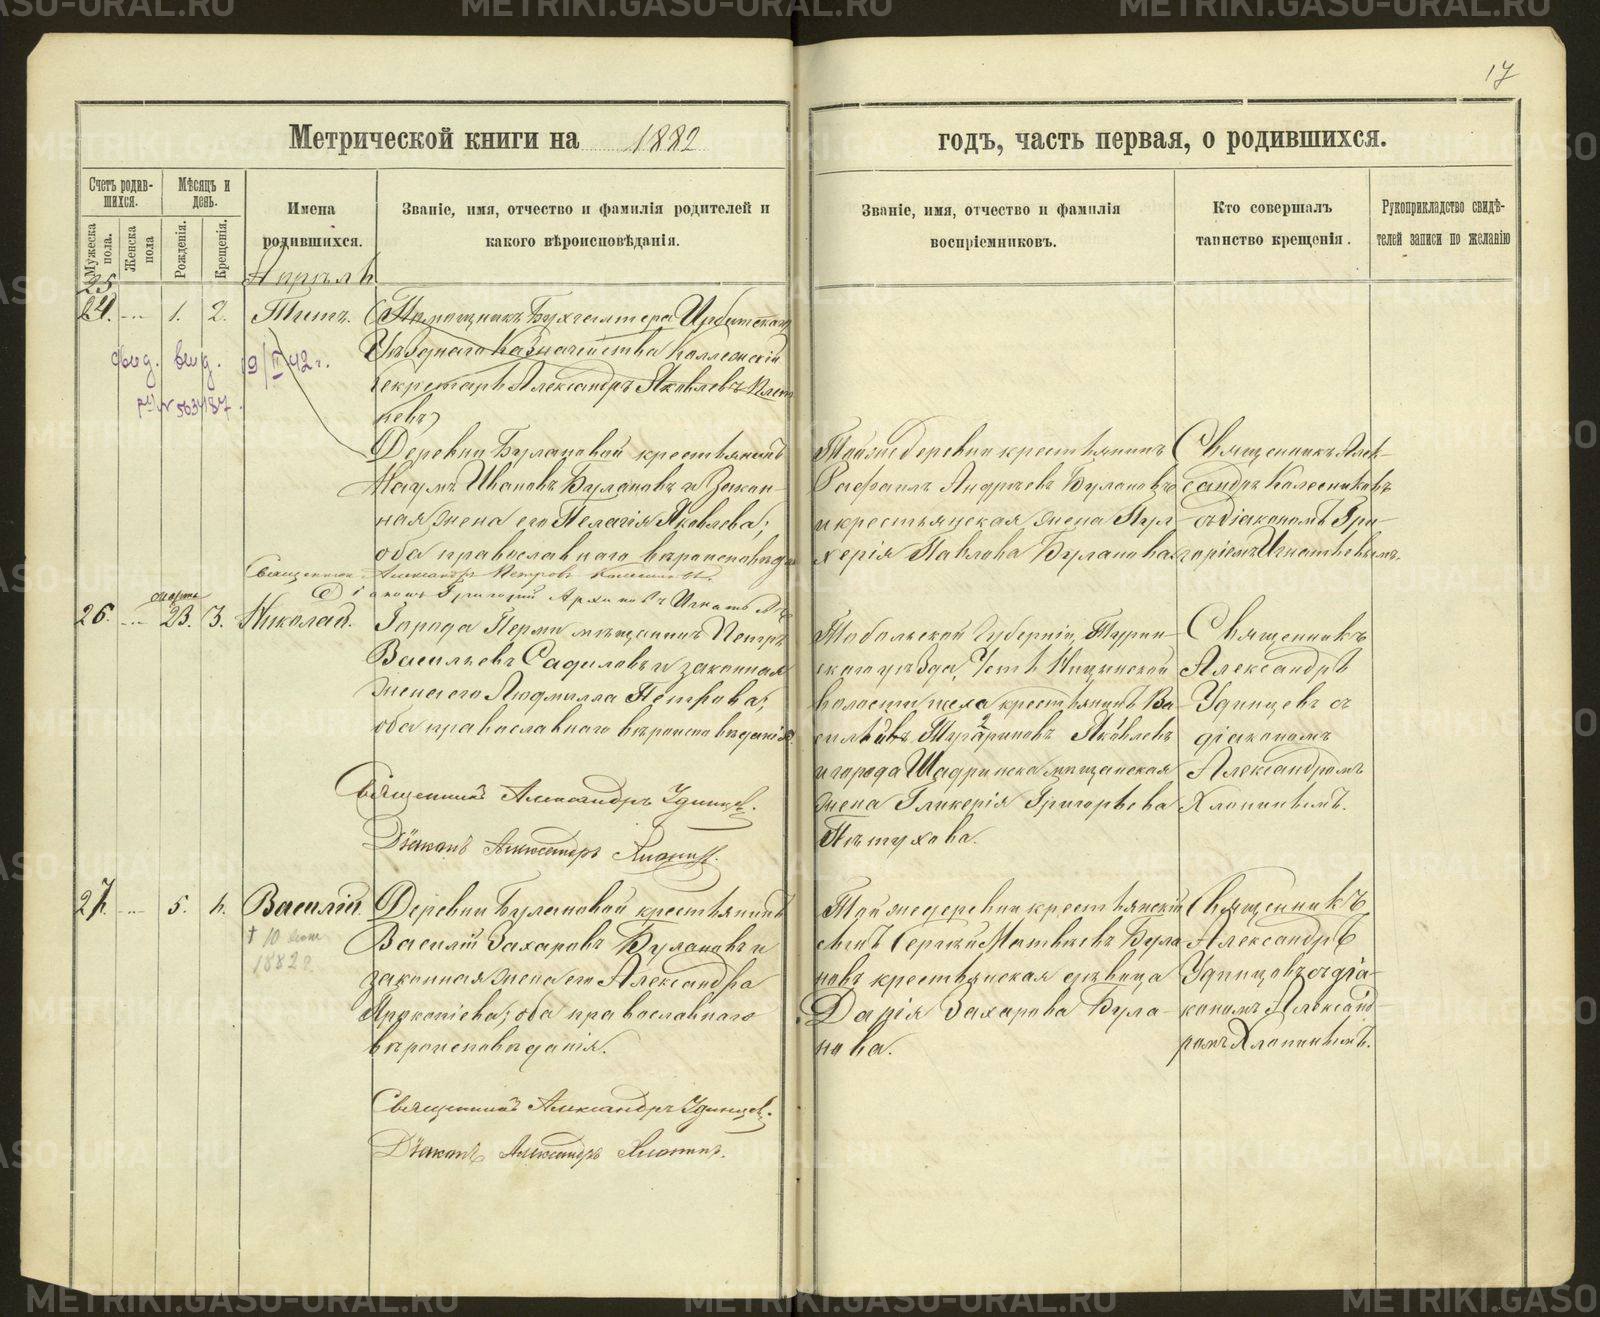 17
Метрической книги на 1882 годъ, часть первая, о родившихся.
Счетъ родившихся.
Мужеска пола.
Женска пола
Мѣсяцъ и день.
Рожденія.
Крещенія.
Имена родившихся.
Званіе, имя, отчество и фамилія родителей и какого вѣроисповѣданія.
Званіе, имя, отчество и фамилія воспріемниковъ.
Кто совершалъ таинство крещенія.
Рукоприкладство свидѣтелей записи по желанію
Апрѣль
25
24. 1. 2. Титъ.
Помощникъ Бухгалтера Ирбитскаго
Уѣзднаго Казначейства Коллежскій
Секретарь Александръ Яковлевъ Плет
невъ
выд. 19/II 42 г.
Деревни Булановой крестьянинъ
Наумъ Ивановъ Булановъ и закон-
ная жена его Пелагія Яковлева;
оба православнаго вѣроисповѣда
Тойже деревни крестьянинъ
Рафаилъ Андреевъ Булановъ
и крестьянская жена Пул-
херія Павлова Буланова.
Священникъ Алек-
сандръ Колесниковъ
съ діакономъ Гри-
горіемъ Игнатьевымъ.
Священник Александръ Петровъ Колесниковъ.
Діаконъ Григорій Архиповъ Игнатьевъ
26. марта 23. 3. Николай.
Города Перми мѣщанинъ Петръ
Васильевъ Садиловъ и законная
жена его Людмилла Петрова;
оба православнаго вѣроисповѣданія.
Тобольской Губерніи, Турин-
скаго уѣзда, Усть Ницинской
волости села крестьянинъ Ва-
сильевъ Тугариновъ Яковлевъ
и города Шадринска мѣщанская
жена Гликерія Григорьева
Пѣтухова.
Священникъ
Александръ
Удинцевъ съ
діакономъ
Александромъ
Хлопинымъ.
Священникъ Александръ Удинцевъ.
Діаконъ Александръ Хлопинъ.
27. 5. 6. Василій.
† 10 июня
1882 г.
Деревни Булановой крестьянинъ
Василій Захаровъ Булановъ и
законная жена его Александра
Прокопіева; оба православнаго
вѣроисповѣданія.
Той же деревни крестьянскій
сынъ Сергій Матвѣевъ Була
новъ крестьянская дѣвица
Дарія Захарова Була-
нова.
Священникъ
Александръ
Удинцовъ съ діа-
кономъ Александ-
ромъ Хлопинымъ.
Священникъ Александръ Удинцевъ.
Діаконъ Александръ Хлопинъ.
METRIKI.GASO-URAL.RU